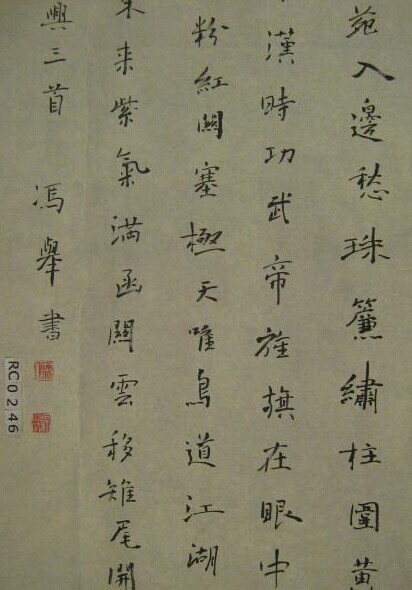 苑入邊愁珠簾繡柱圍黄
漢時功武帝旌旗在眼中
粉紅關塞極天唯鳥道江湖
来紫氣滿函關雲移雉尾開
興三首 馮舉書
RC0246